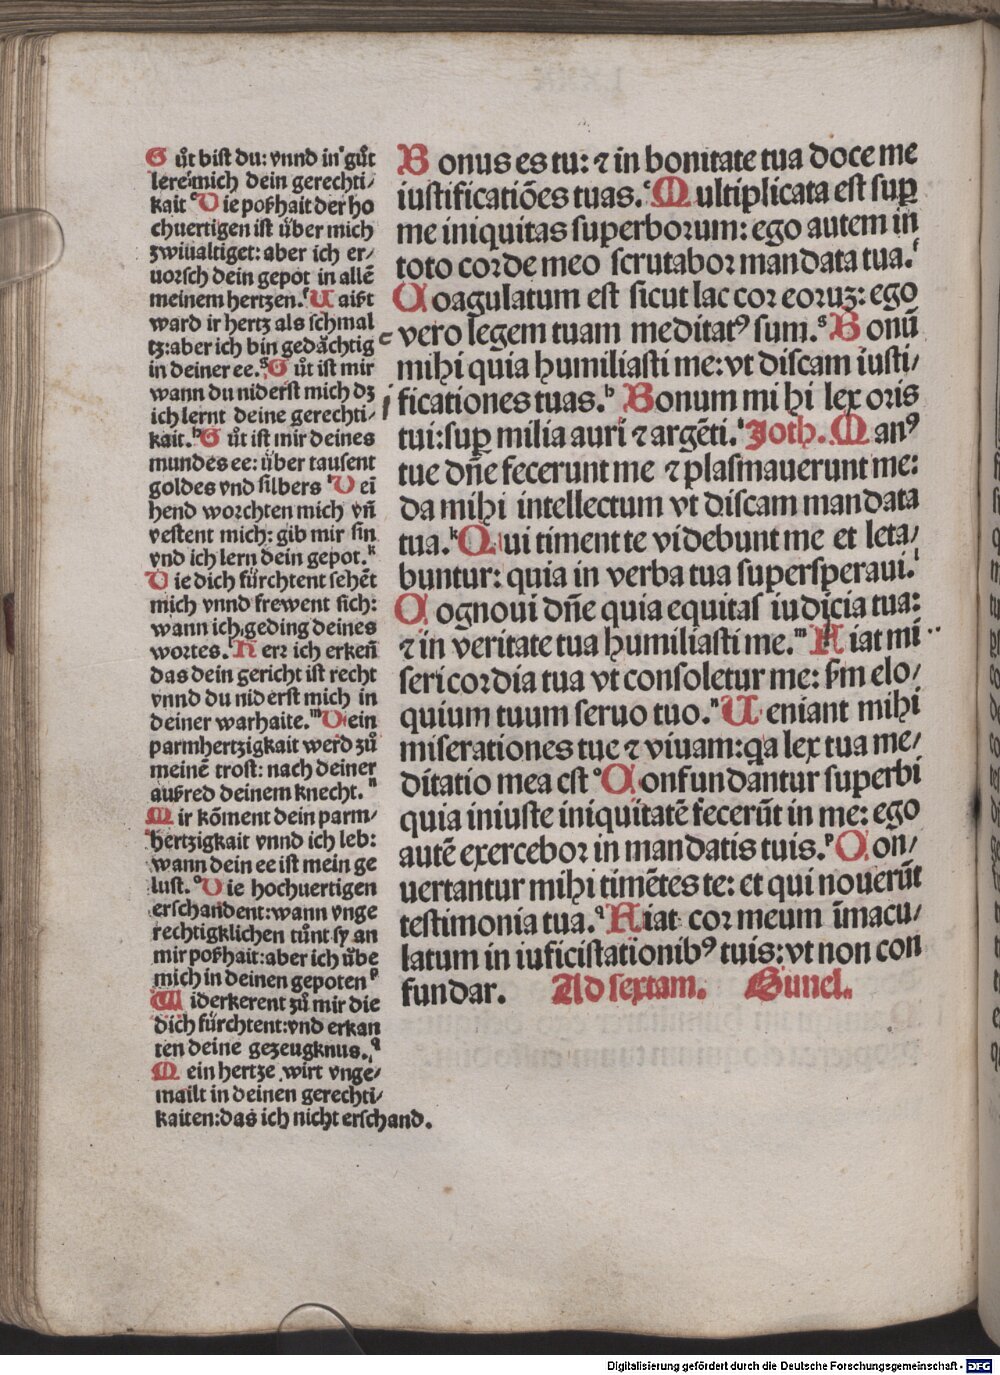 Gůt bist du: vnnd in gůt
lere mich dein gerechti/
kait Die poßhait der ho
chuertigen ist über mich
zwiualtiget: aber ich er/
uorsch dein gepot in allē
meinem hertzen. Vaißt
ward ir hertz als schmal
tz: aber ich bin gedächtig
in deiner ee. Gůt ist mir
wann du niderst mich dz
ich lernt deine gerechti/
kait. Gůt ist mir deines
mundes ee: über tausent
goldes vnd silbers Dei
hend worchten mich vn̄
vestent mich: gib mir sin
vnd ich lern dein gepot.
Die dich fürchtent sehēt
mich vnnd frewent sich:
wann ich geding deines
wortes. Herr ich erken̄
das dein gericht ist recht
vnnd du niderst mich in
deiner warhaite. Dein
parmhertzigkait werd zů
meinē trost: nach deiner
außred deinem knecht.
Mir kōment dein parm/
hertzigkait vnnd ich leb:
wann dein ee ist mein ge
lust. Die hochuertigen
erschandent: wann vnge
rechtigklichen tůnt sy an
mir poßhait: aber ich übe
mich in deinen gepoten
Widerkerent zů mir die
dich fürchtent: vnd erkan
ten deine gezeugknus.
Mein hertze wirt vnge/
mailt in deinen gerechti/
kaiten: das ich nicht erschand.
Bonus es tu: ⁊ in bonitate tua doce me
iustificatiōes tuas. Multiplicata est suꝑ
me iniquitas superborum: ego autem in
toto corde meo scrutabor mandata tua.
Coagulatum est sicut lac cor eoruʒ: ego
vero legem tuam meditatꝰ sum. Bonū
mihi quia humiliasti me: vt discam iusti/
ficationes tuas. Bonum mihi lex oris
tui: suꝑ milia auri ⁊ argēti. Joth. Manꝰ
tue dn̄e fecerunt me ⁊ plasmauerunt me:
da mihi intellectum vt discam mandata
tua. Qui timent te videbunt me et leta/
buntur: quia in verba tua supersperaui.
Cognoui dn̄e quia equitas iudicia tua:
⁊ in veritate tua humiliasti me. Fiat mi
sericordia tua vt consoletur me: ẜm elo/
quium tuum seruo tuo. Veniant mihi
miserationes tue ⁊ viuam: qa lex tua me/
ditatio mea est Confundantur superbi
quia iniuste iniquitatē fecerūt in me: ego
autē exercebor in mandatis tuis. Con/
uertantur mihi timētes te: et qui nouerūt
testimonia tua. Fiat cor meum īmacu/
latum in iuficistationibꝰ tuis: vt non con
fundar. Ad sextam. Gunel.
Digitalisierung gefördert durch die Deutsche Forschungsgemeinschaft - DFG